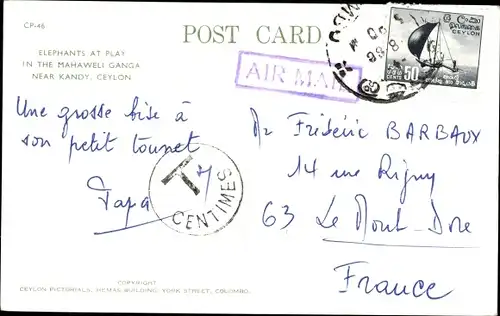 CP-46
POST CARD
ELEPHANTS AT PLAY
IN THE MAHAWELI GANGA
NEAR KANDY, CEYLON
AIR MAIL
CEYLON
50
CENTS
Une grosse bise à
son petit
Papa
T
CENTIMES
Mr Frédéric BARBAUX
14 rue Rigny
63 Le Mont-Dore
France
COPYRIGHT
CEYLON PICTORIALS, HEMAS BUILDING, YORK STREET, COLOMBO.